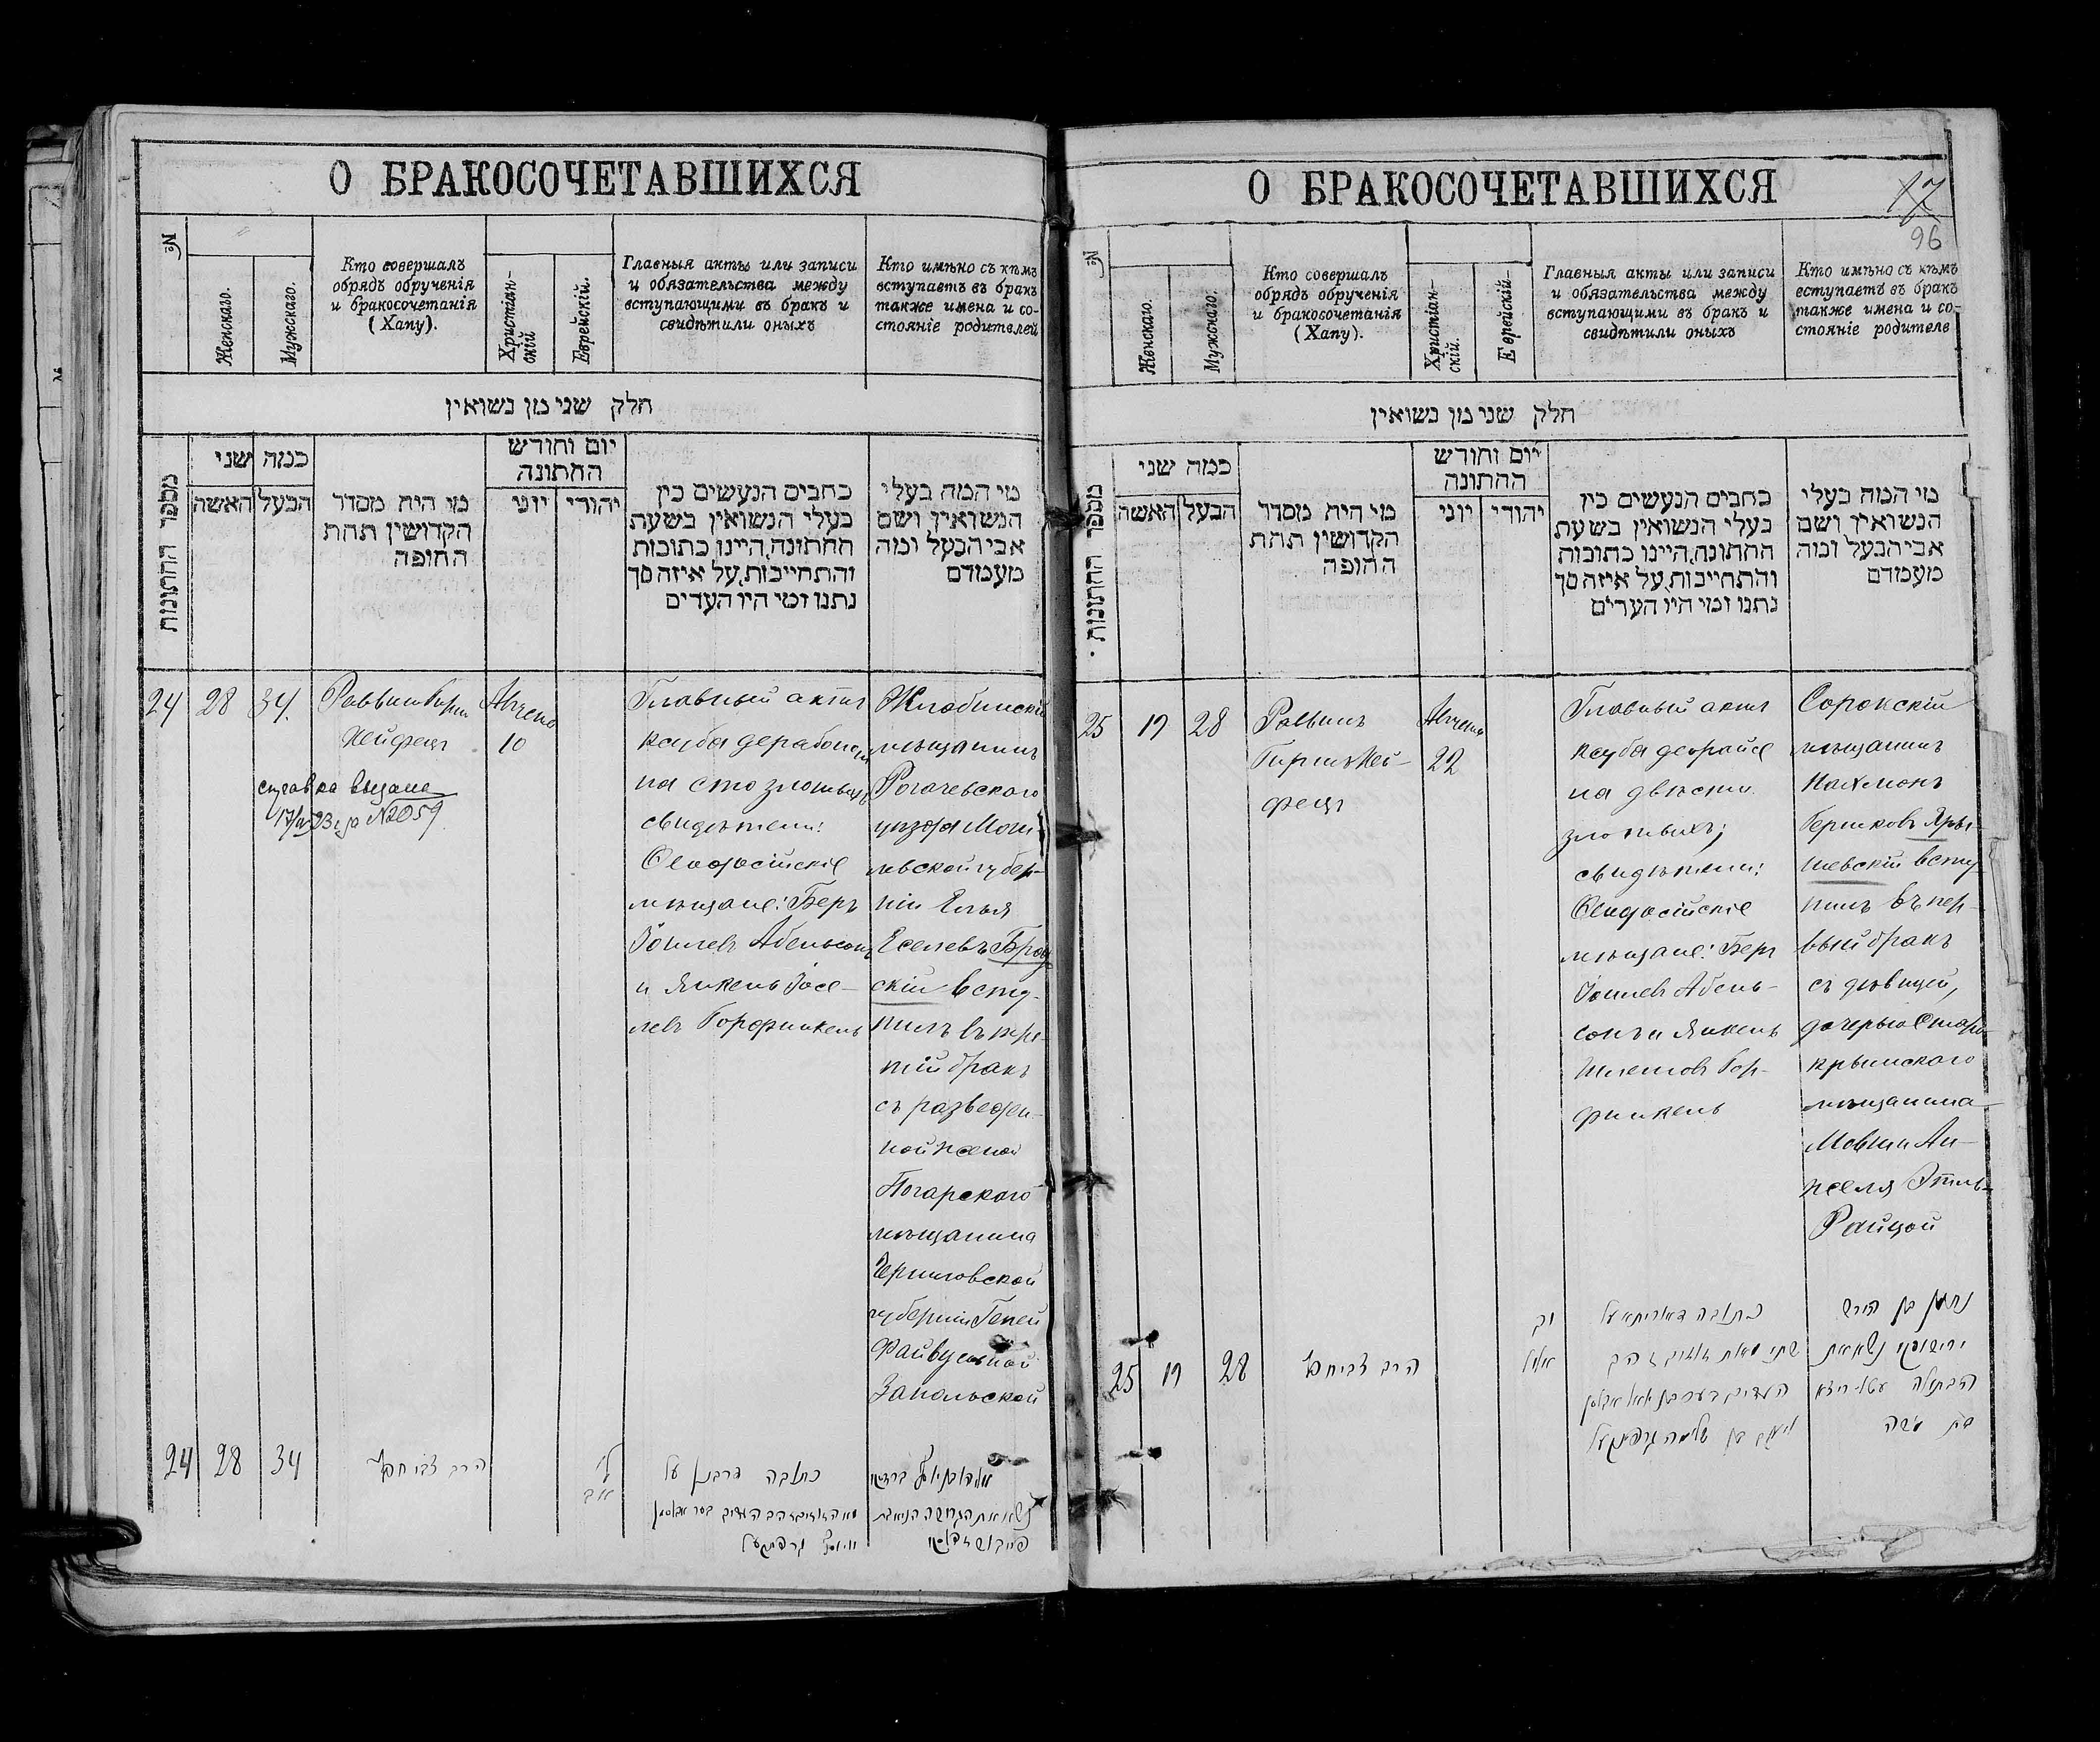 О БРАКОСОЧЕТАВШИХСЯ
№
Женскаго.
Мужскаго.
Кто совершалъ
обрядъ обрученія
и бракосочетанія
(Хапу).
Христіан-
скій
Еврейскій.
Главныя акты или записи
и обязательства между
вступающими въ бракъ и
свидѣтили оныхъ
Кто имѣно съ кѣмъ
вступаетъ въ бракъ
также имена и со-
стояніе родителей
חלק שני מן נשואין
מספר החתונות
כמה שני
האשה
הבעל
מי היה מסדר
הקדושין תחת
החופה
יום וחודש
החתונה
יוני
יהודי
כתבים הנעשים בין
בעלי הנשואין בשעת
החתונה, היינו כתובות
והתחייבות, על איזה סך
נתנו ומי היו העדים
מי המה בעלי
הנשואין ושם
אבי הבעל ומה
מעמדם
24
28
34.
Раввинъ Гирш
Хейфецъ
справка выдана
17/IV 23 г за №2059
Августа
10
Главный актъ
ксуба дерабононъ
на сто злотыхъ
свидѣтели:
Ѳеодосійскіе
мѣщане: Беръ
Іоилевъ Абельсонъ
и Янкель Іосе-
левъ Горфинкель
Жлобинскій
мѣщанинъ
Рогачевскаго
уѣзда Моги-
левской губер-
ніи Елья
Еселевъ Брод-
скій всту-
пилъ въ тре-
тій бракъ
съ разведен-
ной женой
Погарскаго
мѣщанина
Черниговской
губерніи Геней
Файвусовной
Запольской
24
28
34
הרב צבי חפץ
אב
כתובה דרבנן על
О БРАКОСОЧЕТАВШИХСЯ
17
96
№
Женскаго.
Мужскаго.
Кто совершалъ
обрядъ обрученія
и бракосочетанія
(Хапу).
Христіан-
скій.
Еврейскій
Главныя акты или записи
и обязательства между
вступающими въ бракъ и
свидѣтили оныхъ
Кто имѣно съ кѣмъ
вступаетъ въ бракъ
также имена и со-
стояніе родителе
חלק שני מן נשואין
מספר החתונות
כמה שני
האשה
הבעל
מי היה מסדר
הקדושין תחת
החופה
יום וחודש
החתונה
יוני
יהודי
כתבים הנעשים בין
בעלי הנשואין בשעת
החתונה, היינו כתובות
והתחייבות, על איזה סך
נתנו ומי היו העדים
מי המה בעלי
הנשואין ושם
אבי הבעל ומה
מעמדם
25
19
28
Раввинъ
Гиршъ Хей-
фецъ
Августа
22
Главный актъ
ксуба деорайсе
на двѣсти
злотыхъ;
свидѣтели:
Ѳеодосійскіе
мѣщане: Беръ
Іоилевъ Абель-
сонъ и Янкель
Шлемовъ Гор-
финкель
Сорокскій
мѣщанинъ
Нахманъ
Гершковъ Яры-
шевскій всту-
пилъ въ пер-
вый бракъ
съ дѣвицей,
дочерью Старо-
крымскаго
мѣщанина
Мовши Ан-
желя Этль-
Райцой
25
19
28
הרב צבי חפץ
אלול
כתובה דאורייתא על
בת משה